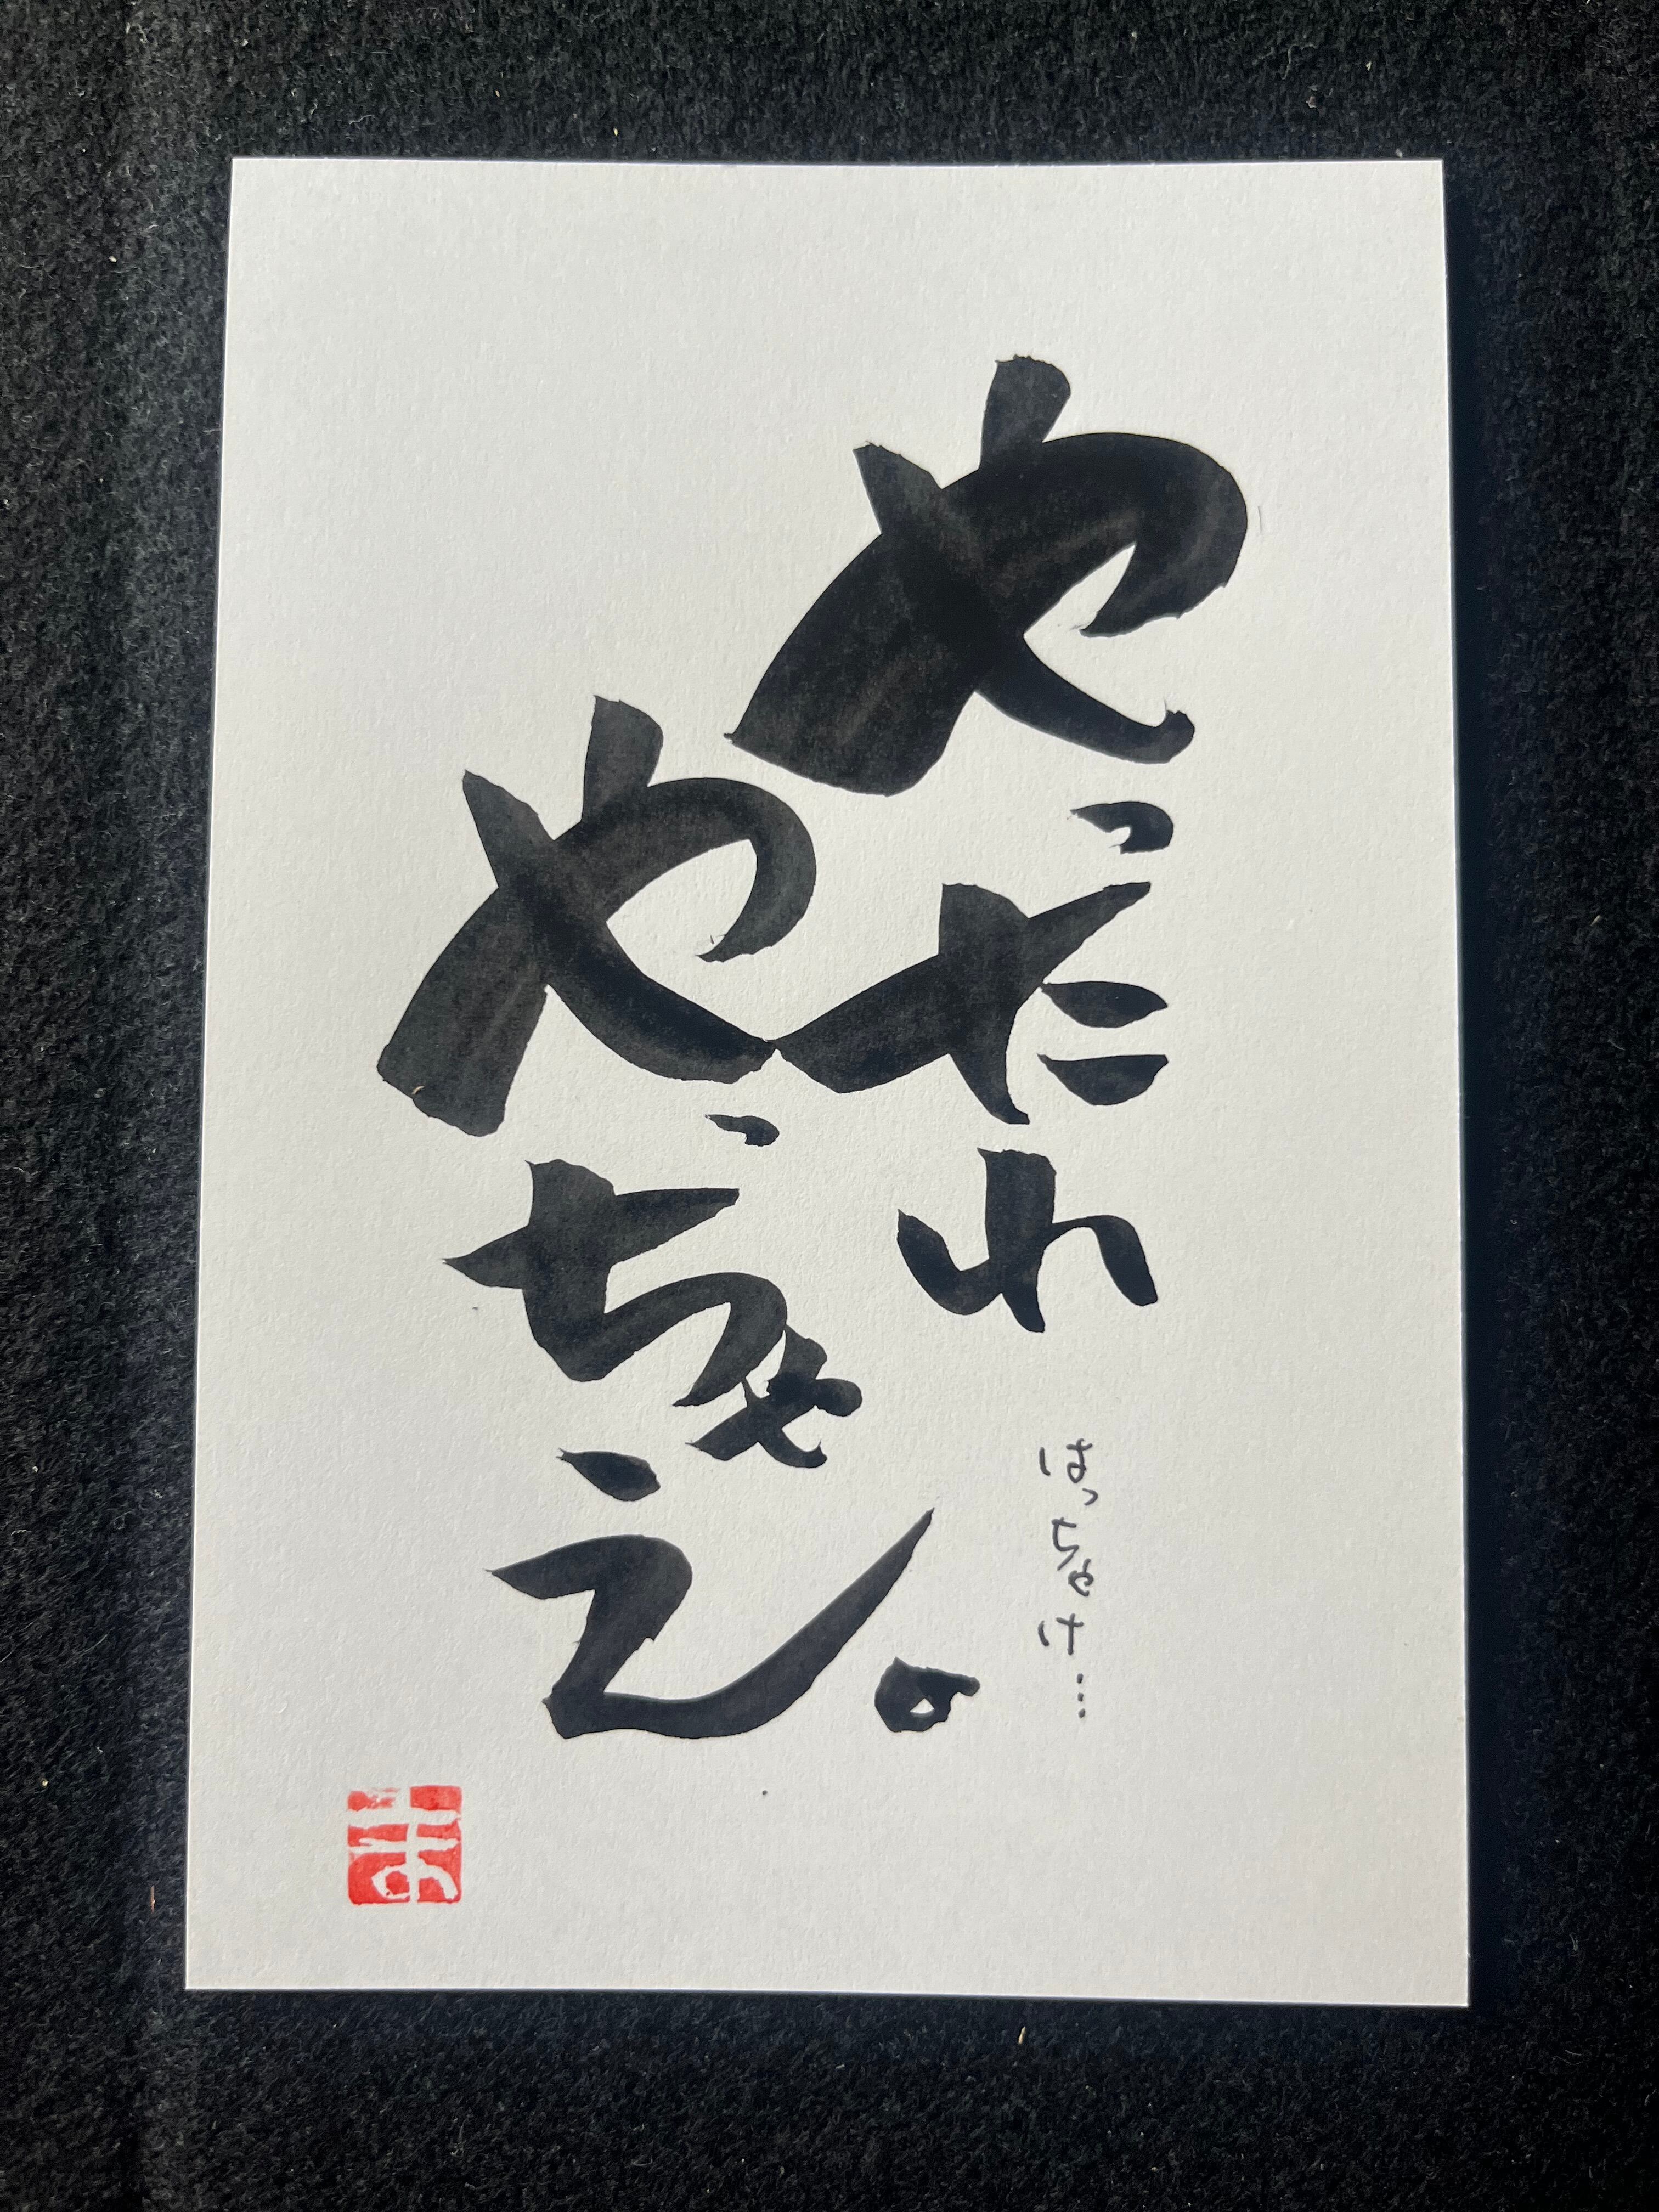 やったれ
はっちゃけ…
やっちゃえ。
ま